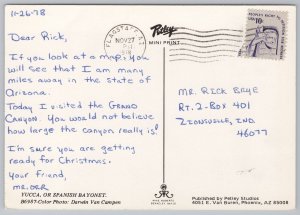 11-26-78
Dear Rick,
If you look at a map, you
will see that I am many
miles away in the state of
Arizona.
Today I visited the GRAND
CANYON. You would not believe
how large the canyon really is!
I'm sure you are getting
ready for Christmas.
Your friend,
MR. ORR
YUCCA, OR SPANISH BAYONET.
B6987-Color Photo: Darwin Van Campen
Petley
MINI PRINT
FLAGSTAFF, AZ
NOV 27
PM
MR. RICK BAYE
RT. 2-BOX 401
ZIONSVILLE, IND.
46077
Published by Petley Studios
4051 E. Van Buren, Phoenix, AZ 85008